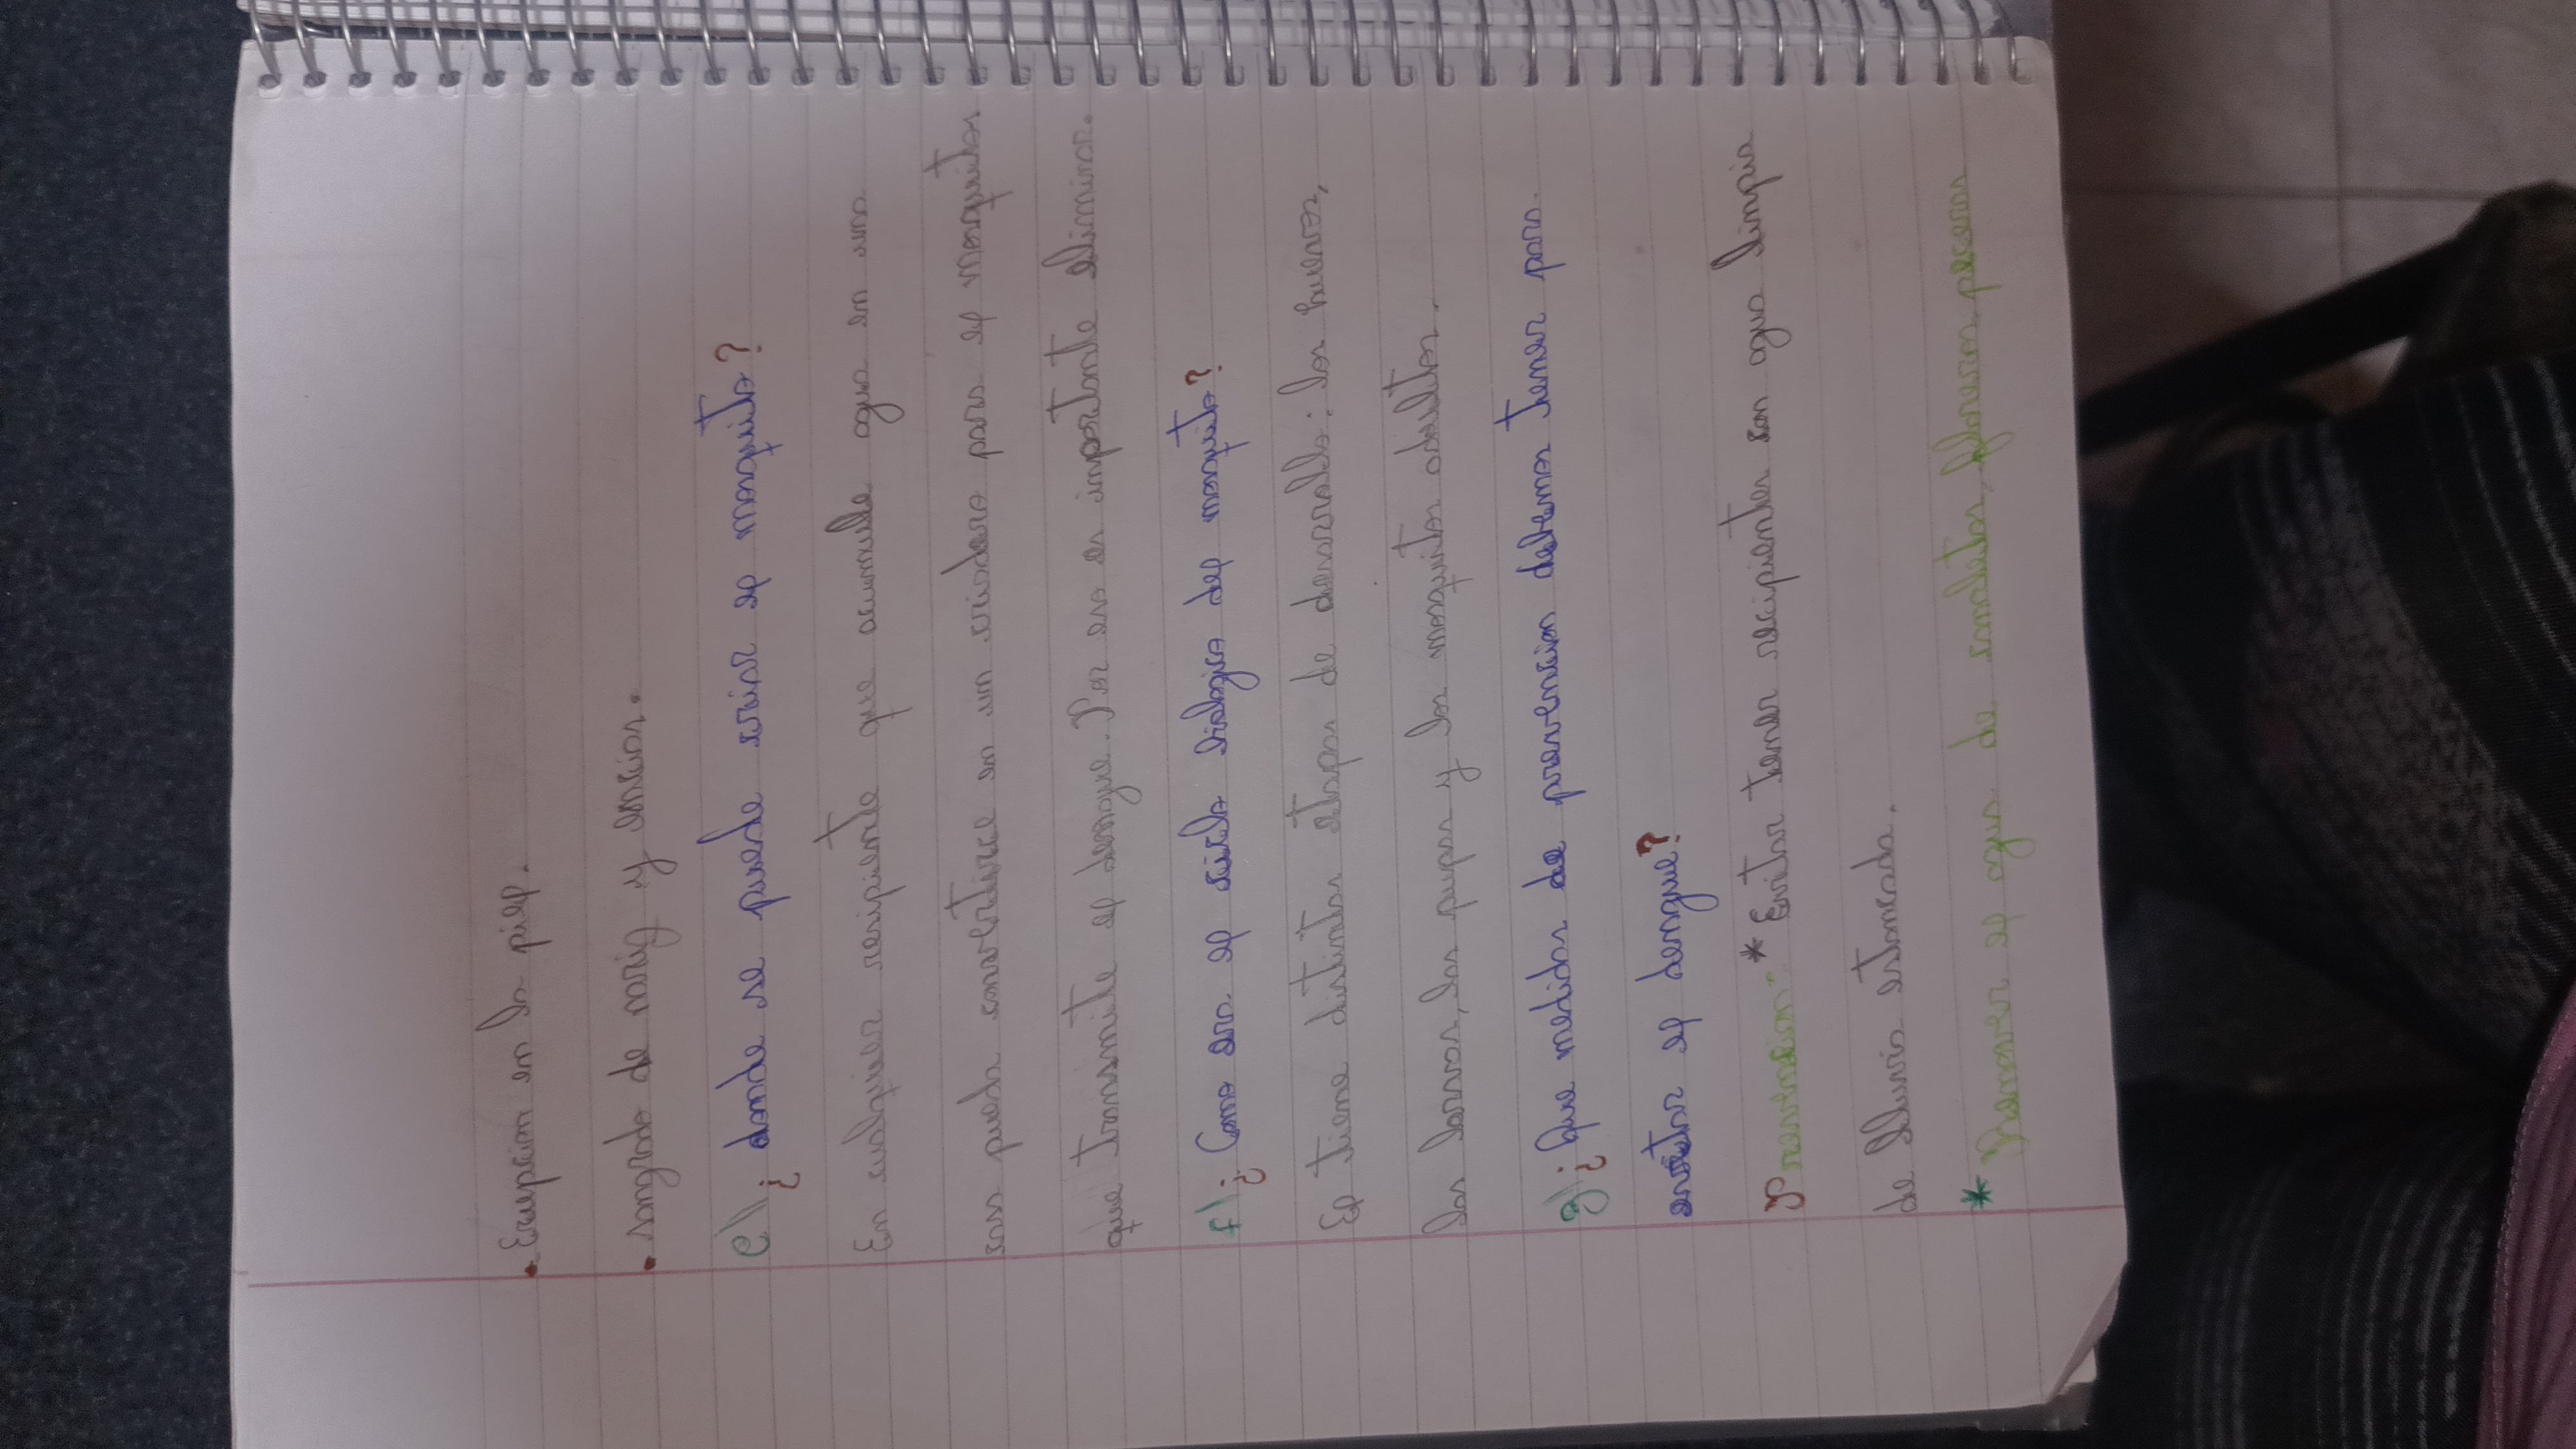 • Erupcion en la piel.
• sangrado de nariz y encias.
e) ¿ donde se puede criar el mosquito?
En cualquier recipiente que acumule agua en una
casa pueda convertirce en un criadero para el mosquitos
que transmite el dengue. Por eso es importante eliminar.
f) ¿ Como era el siclo biologico del mosquito?
El tiene distintas etapas de desarrollo: los huevos,
las larvas, las pupas y los mosquitos adultos.
g) ¿ Que medidas de prevencion debemos tener para
envitar el dengue?
Prevencion * Evitar tener recipientes con agua limpia
de lluvia estancada.
* Remover el agua de canaletas, floreros, peceras